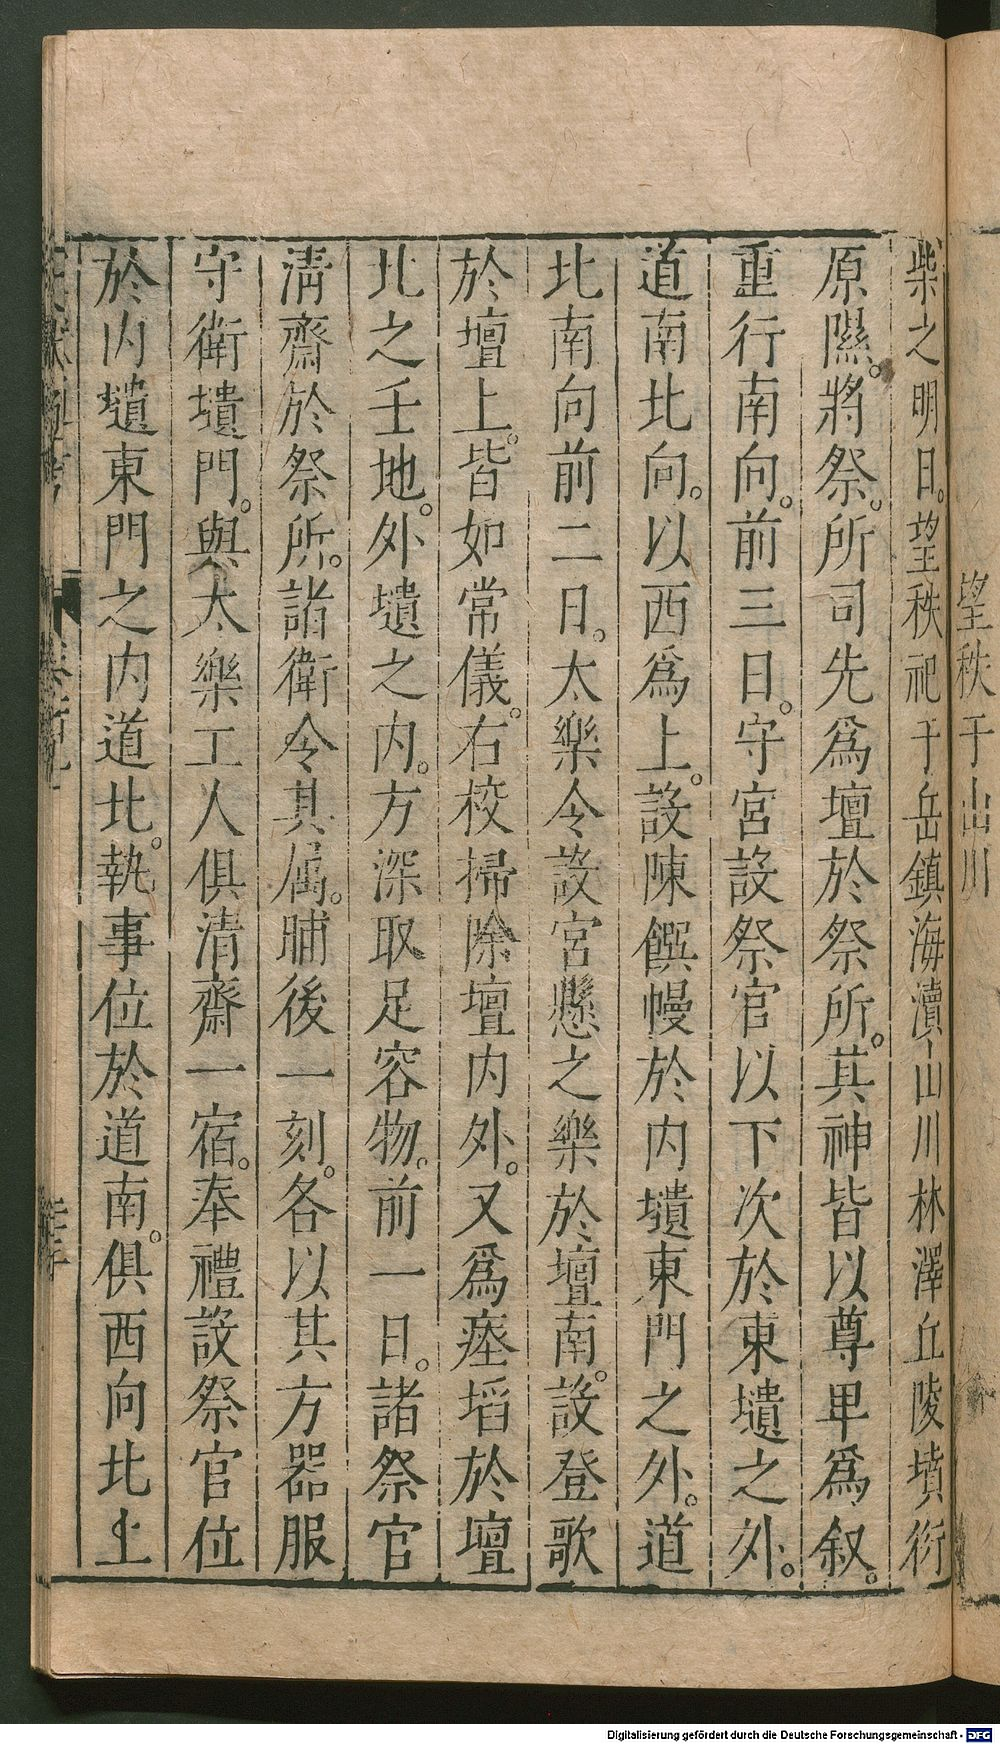 望秩于山川
柴之明日。望秩祀于岳鎮海瀆山川林澤丘陵墳衍
原隰。將祭。所司先爲壇於祭所。其神皆以尊卑爲叙。
重行南向。前三日。守宮設祭官以下次於東壝之外。
道南北向。以西爲上。設陳饌幔於内壝東門之外。道
北南向前二日。太樂令設宮懸之樂於壇南。設登歌
於壇上。皆如常儀。右校掃除壇内外。又爲瘞埳於壇
北之壬地。外壝之内。方深取足容物。前一日。諸祭官
清齋於祭所。諸衛令其属。脯後一刻。各以其方器服
守衛壝門。與大樂工人俱清齋一宿。奉禮設祭官位
於内壝東門之内道北。執事位於道南。俱西向北上
Digitalisierung gefördert durch die Deutsche Forschungsgemeinschaft - DFG